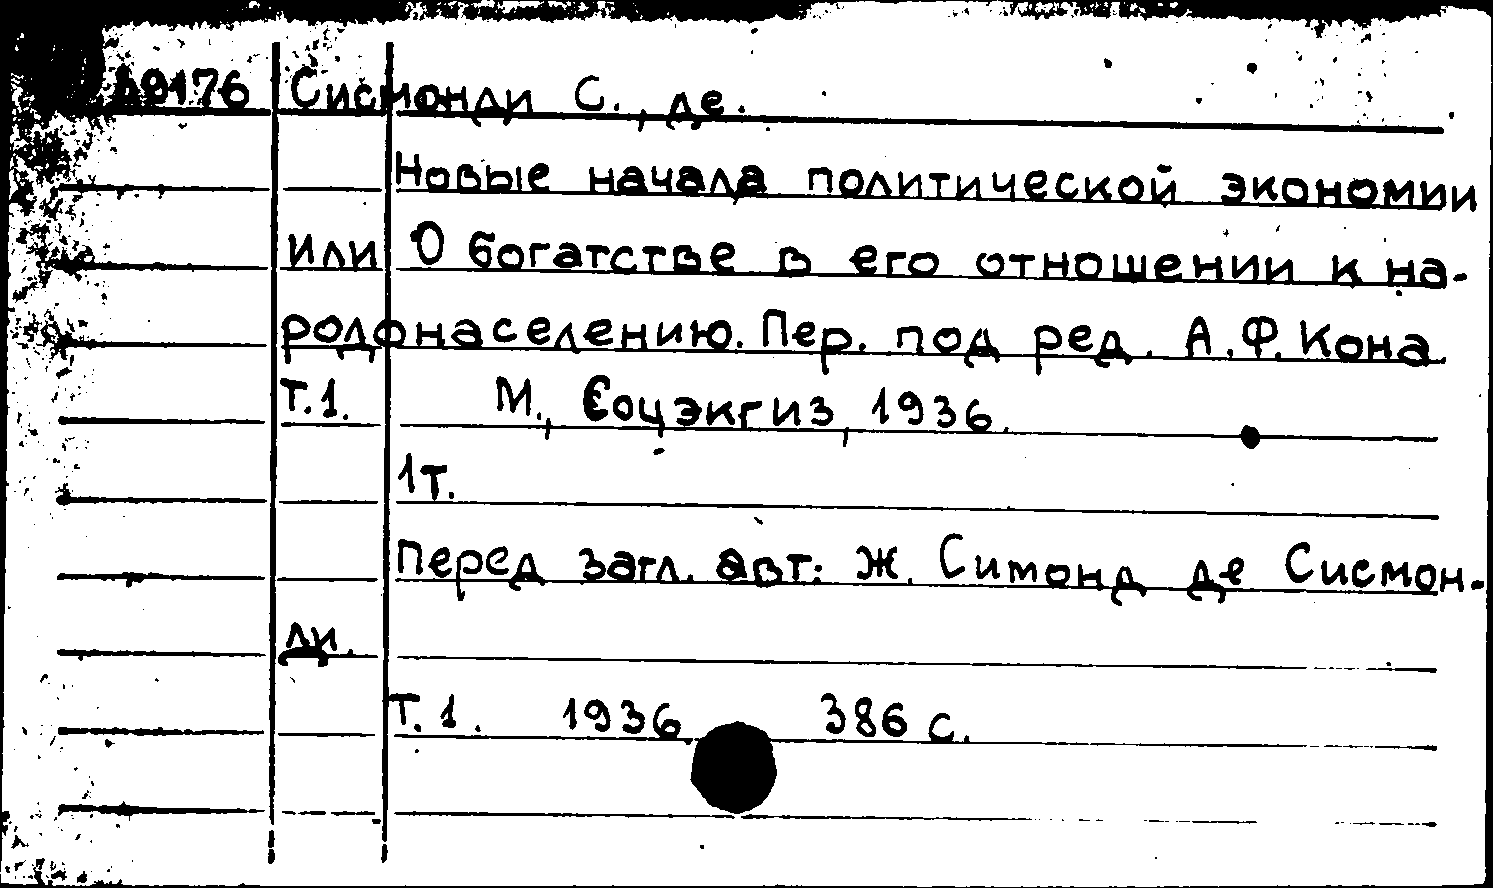 Д9176 Сисмонди С., де.
Новые начала политической экономии
или О богатстве в его отношении к на-
родонаселению. Пер. под ред. А.Ф. Кона
Т.1. М., Соцэкгиз, 1936.
1т.
Перед загл. авт: Ж. Симонд де Сисмон-
ди.
Т.1. 1936. 386 с.